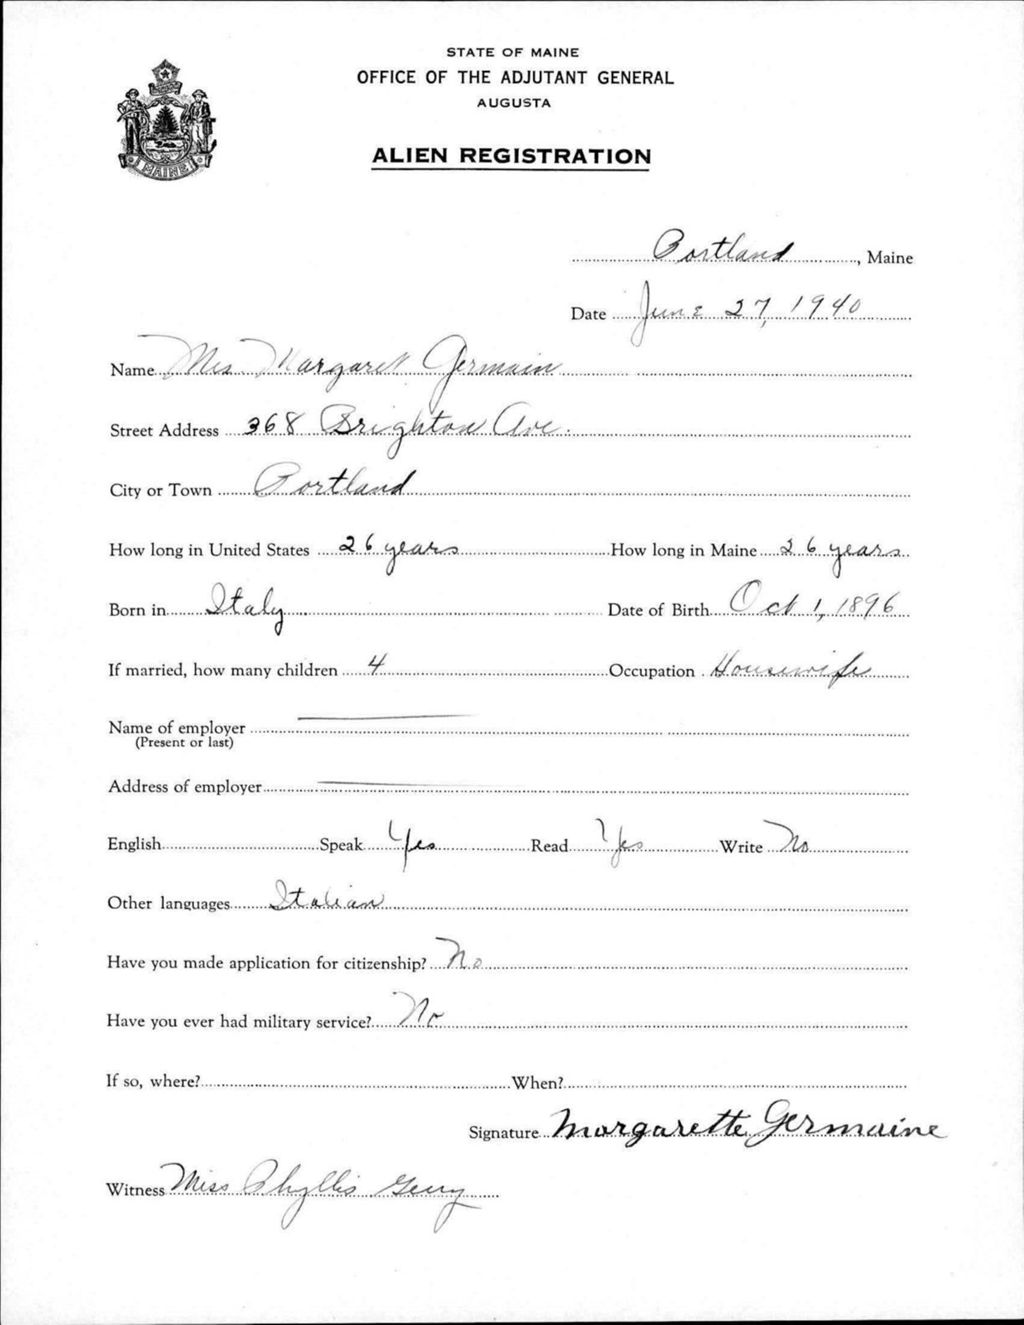 STATE OF MAINE
OFFICE OF THE ADJUTANT GENERAL
AUGUSTA
ALIEN REGISTRATION
MAINE
Portland, Maine
Date June 27, 1940
Name Mrs. Margaret Germain
Street Address 368 Brighton Ave.
City or Town Portland
How long in United States 26 years How long in Maine 26 years
Born in Italy Date of Birth Oct 1, 1896
If married, how many children 4 Occupation Housewife
Name of employer
(Present or last)
Address of employer
English Speak Yes Read Yes Write No
Other languages Italian
Have you made application for citizenship? No
Have you ever had military service? No
If so, where? When?
Signature Margarette Germaine
Witness Miss Phyllis